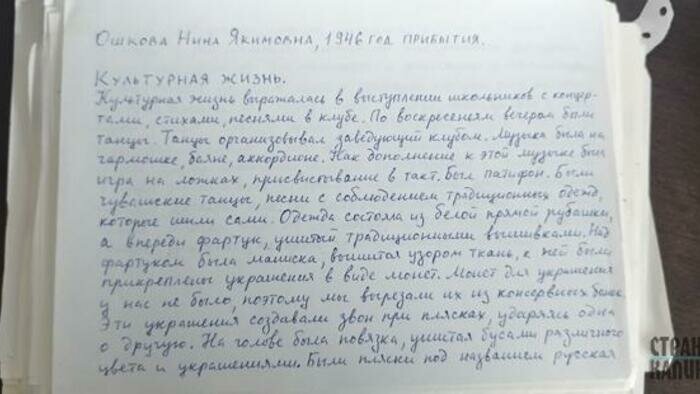 Ошкова Нина Якимовна, 1946 год прибытия.
Культурная жизнь.
Культурная жизнь выражалась в выступлении школьников с концер-
тами, стихами, песнями в клубе. По воскресеньям вечером были
танцы. Танцы организовывал заведующий клубом. Музыка была на
гармошке, баяне, аккордионе. Как дополнение к этой музыке была
игра на ложках, присвистывание в такт. Был патифон. Были
чувашские танцы, песни с соблюдением традиционных одежд,
которые шили сами. Одежда состояла из белой прямой рубашки,
а впереди фартук, ушитый традиционными вышивками. Над
фартуком была маниска, вышитая узором ткань, к ней были
прикреплены украшения в виде монет. Монет для украшения
у нас не было, поэтому мы вырезали их из консервных банок.
Эти украшения создавали звон при плясках, ударяясь одна
о другую. На голове была повязка, ушитая бусами различного
цвета и украшениями. Были пляски под названием русская
СТРАН
КАЛИН